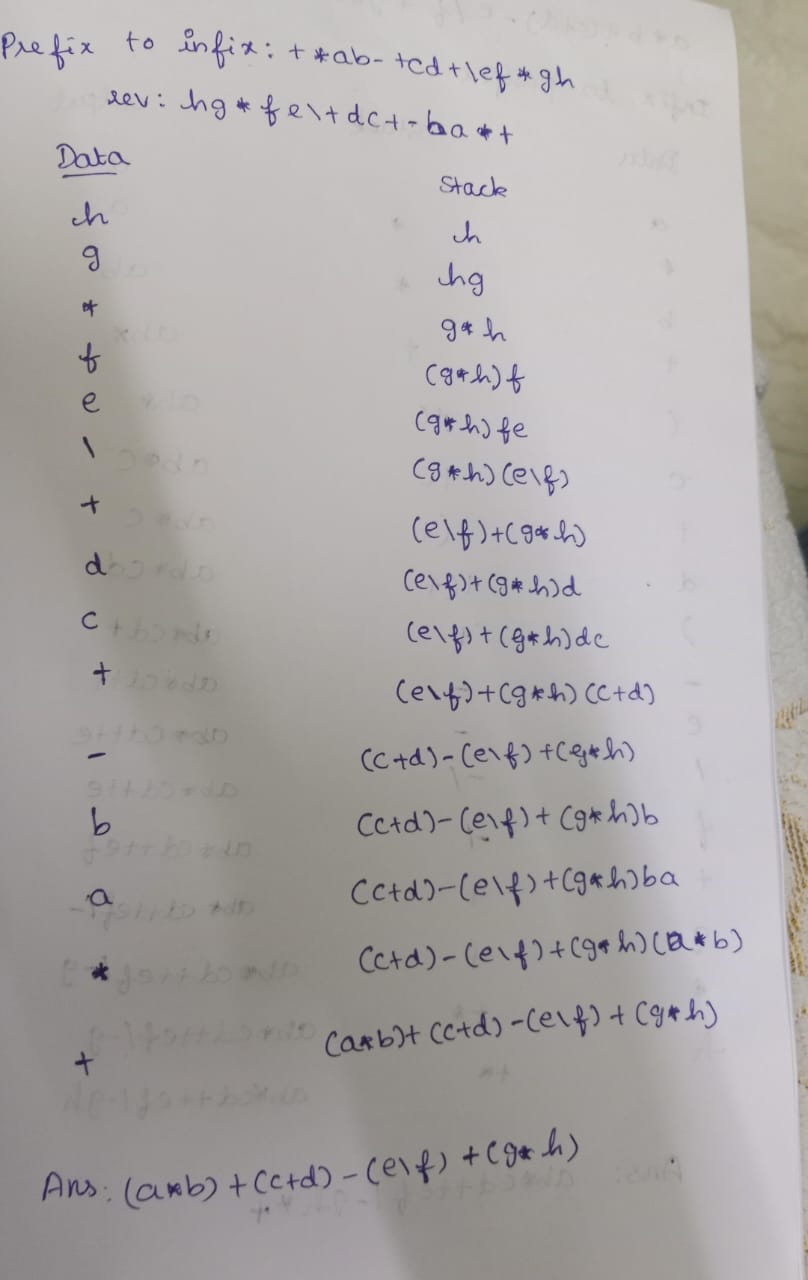 Prefix to infix: + *ab- +cd+\ef*gh
rev: hg*fe\+dc+-ba*+
Data Stack
h h
g hg
* g*h
f (g*h)f
e (g*h)fe
\ (g*h)(e\f)
+ (e\f)+(g*h)
d (e\f)+(g*h)d
c (e\f)+(g*h)dc
+ (e\f)+(g*h)(c+d)
- (c+d)-(e\f)+(g*h)
b (c+d)-(e\f)+(g*h)b
a (c+d)-(e\f)+(g*h)ba
* (c+d)-(e\f)+(g*h)(a*b)
+ (a*b)+(c+d)-(e\f)+(g*h)
Ans: (a*b)+(c+d)-(e\f)+(g*h)